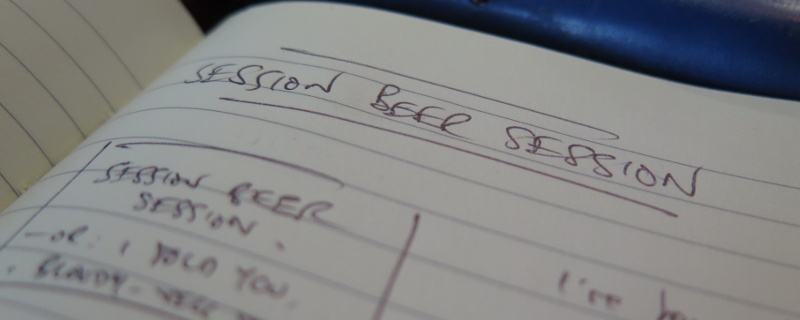 SESSION BEER SESSION
SESSION BEER
SESSION.
- OR: I TOLD YOU
I'm